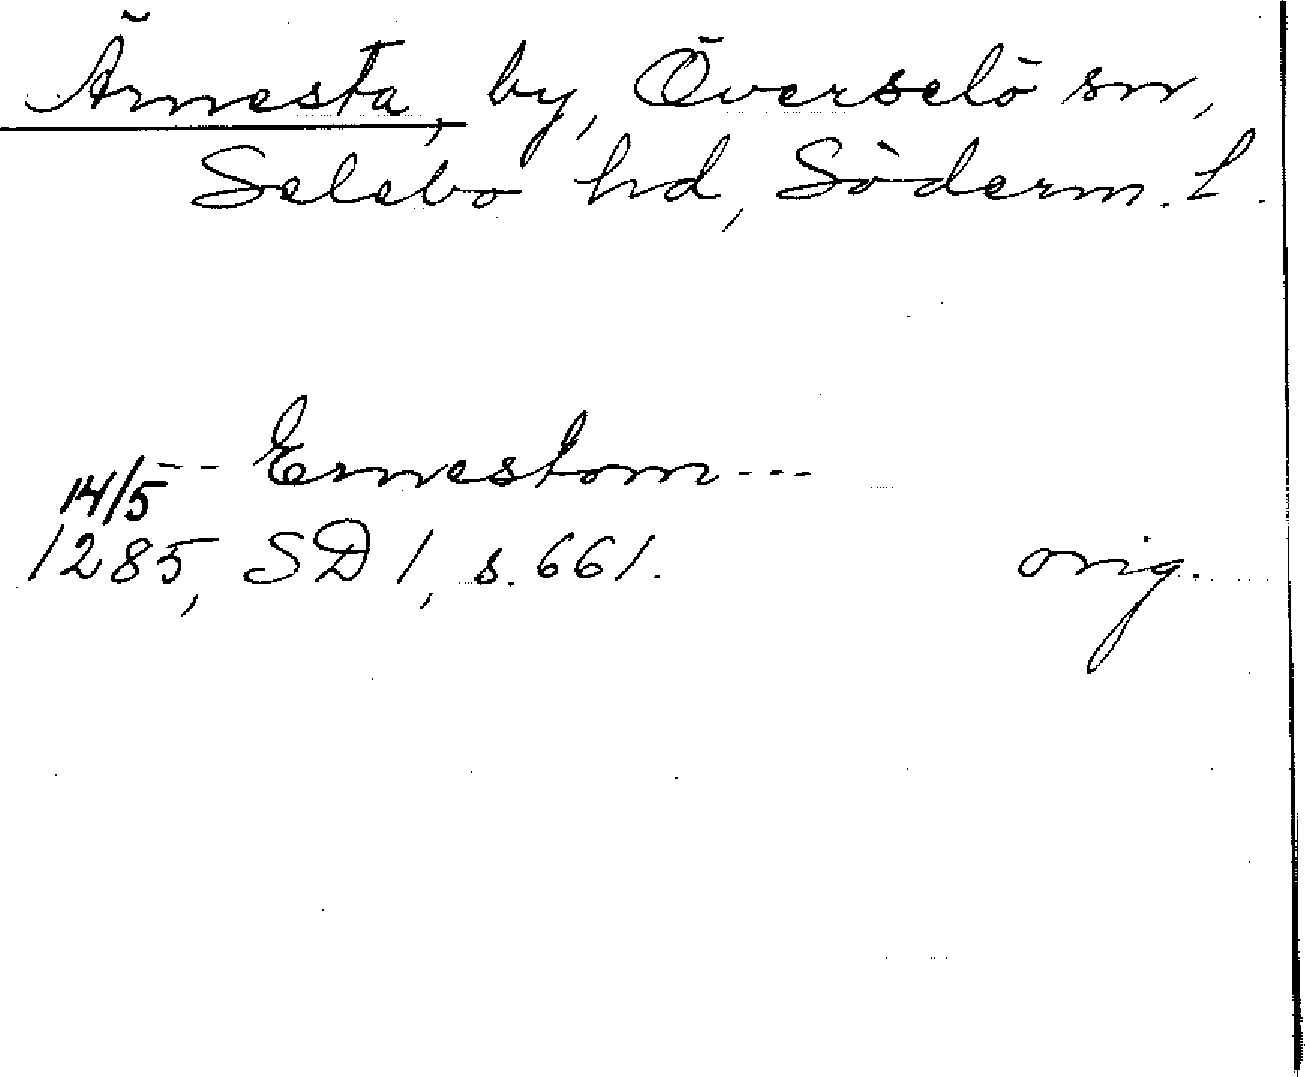 Ärnesta, by, Överselö sn,
Selebo hd, Söderm. l.
-- Ernestom ---
14/5
1285, SD 1, s. 661. orig.